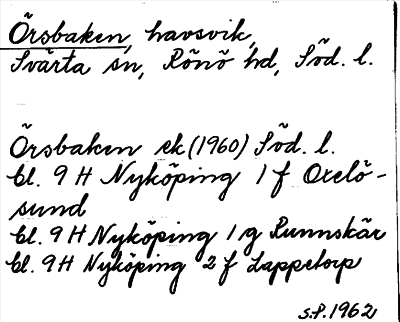 Örsbaken, havsvik,
Svärta sn, Rönö hd, Söd. l.
Örsbaken ek (1960) Söd. l.
Bl. 9 H Nyköping 1 f Oxelö-
sund
Bl. 9 H Nyköping 1 g Runnskär
Bl. 9 H Nyköping 2 f Lappetorp
S.P. 1962